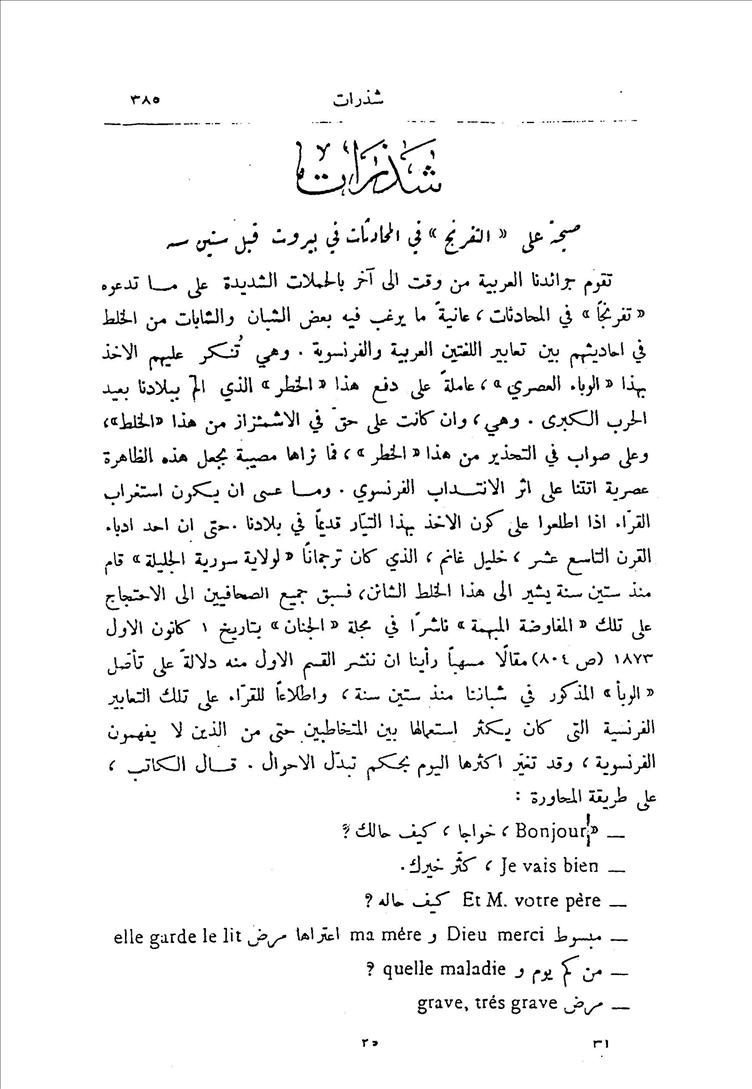 شذرات ٣٨٥
شذرات
صيحة على «التفرنج» في المحادثات في بيروت قبل ستين سنه
تقوم جرائدنا العربية من وقت الى آخر بالحملات الشديدة على ما تدعوه
«تفرنجاً» في المحادثات، عانيةً ما يرغب فيه بعض الشبان والشابات من الخلط
في احاديثهم بين تعابير اللغتين العربية والفرنسوية. وهي تُنكر عليهم الاخذ
بهذا «الوباء العصري»، عاملةً على دفع هذا «الخطر» الذي المّ ببلادنا بعيد
الحرب الكبرى. وهي، وان كانت على حقّ في الاشمئزاز من هذا «الخلط»،
وعلى صواب في التحذير من هذا «الخطر»، فما نراها مصيبة بجعل هذه الظاهرة
عصرية اتتنا على اثر الانتداب الفرنسوي. وما عسى ان يكون استغراب
القرّاء اذا اطلعوا على كون الاخذ بهذا التيّار قديماً في بلادنا. حتى ان احد ادباء
القرن التاسع عشر، خليل غانم، الذي كان ترجماناً «لولاية سورية الجليلة» قام
منذ ستين سنة يشير الى هذا الخلط الشائن، فسبق جميع الصحافيين الى الاحتجاج
على تلك «المفاوضة المبهمة» ناشرًا في مجلة «الجنان» بتاريخ ١ كانون الاول
١٨٧٣ (ص ٨٠٤) مقالًا مسهباً رأينا ان ننشر القسم الاول منه دلالةً على تأصّل
«الوبأ» المذكور في شباننا منذ ستين سنة، واطلاعاً للقرّاء على تلك التعابير
الفرنسية التي كان يكثر استعمالها بين المتخاطبين حتى من الذين لا يفهمون
الفرنسوية، وقد تغيّر اكثرها اليوم بحكم تبدّل الاحوال. قال الكاتب،
على طريقة المحاورة:
— «Bonjour، خواجا، كيف حالك؟
— Je vais bien، كثّر خيرك.
— Et M. votre père كيف حاله؟
— مبسوط Dieu merci و ma mére اعتراها مرض elle garde le lit
— من كم يوم و quelle maladie؟
— مرض grave, trés grave
٣١ ٢٥